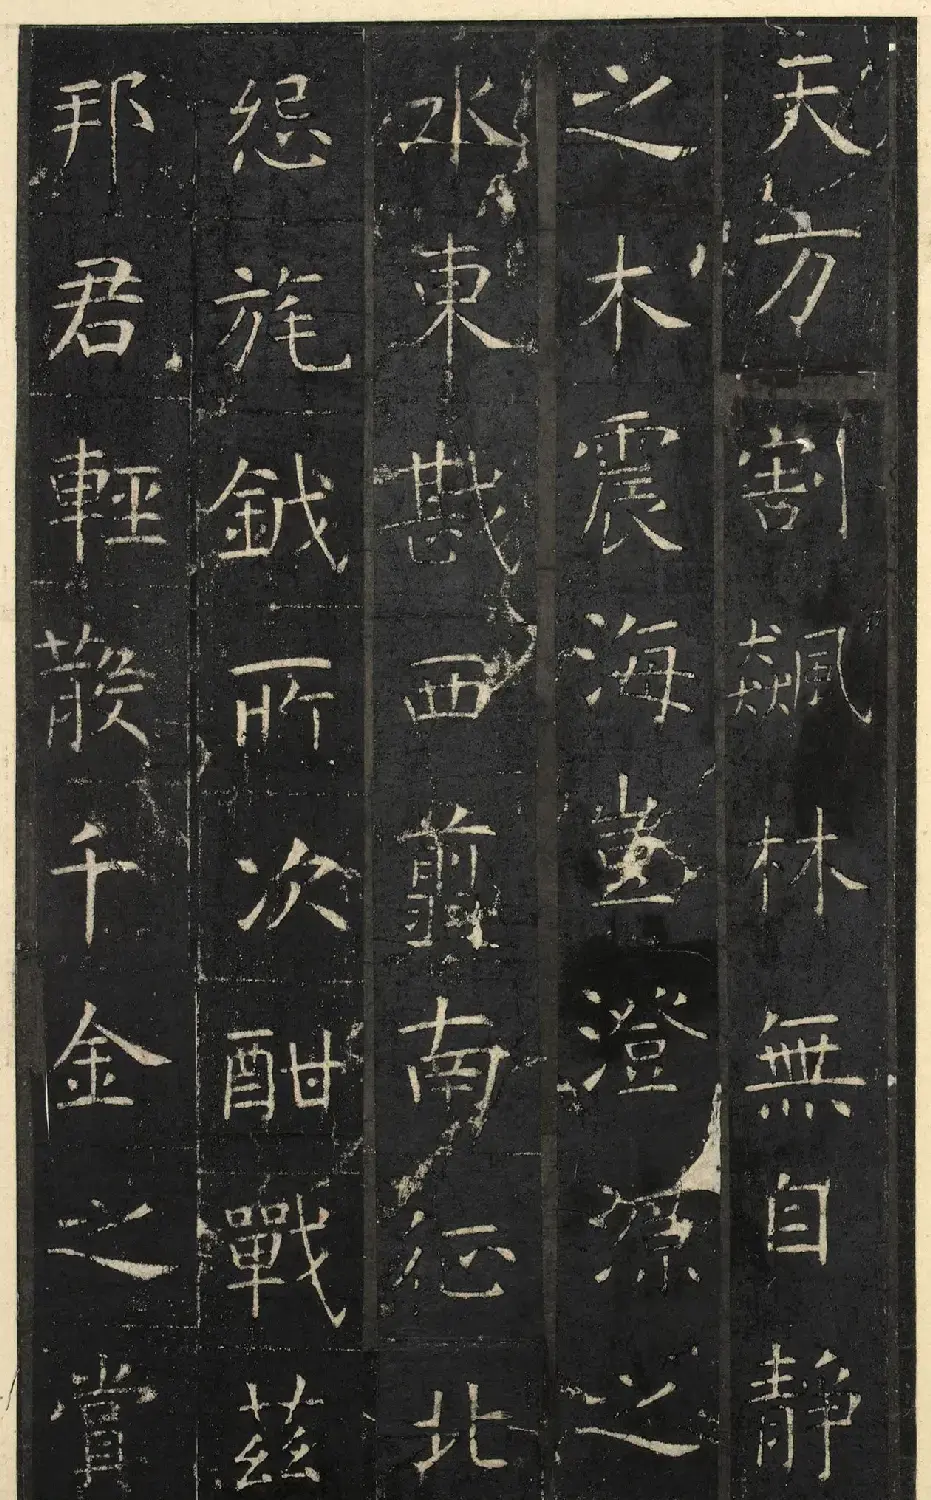 天方割飆林無自静
之木震海豈澄源之
水東戡西翦南征北
怨旄鉞所次酣戰茲
邦君輕散千金之賞